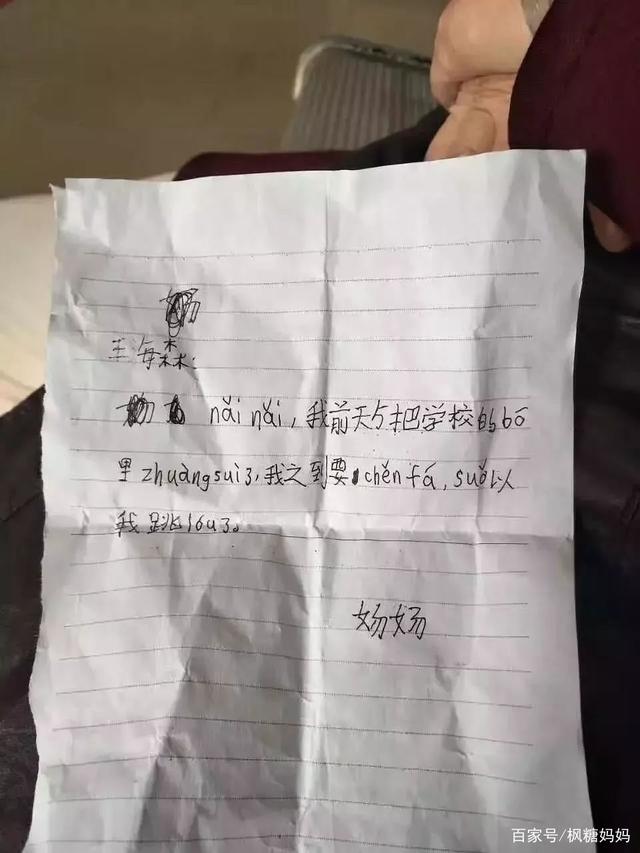 王海森:
nǎi nǎi,我前天把学校的bō
里zhuàngsuì3,我之到要chěnfá,suǒ以
我跳lóu3。
百家号/枫糖妈妈